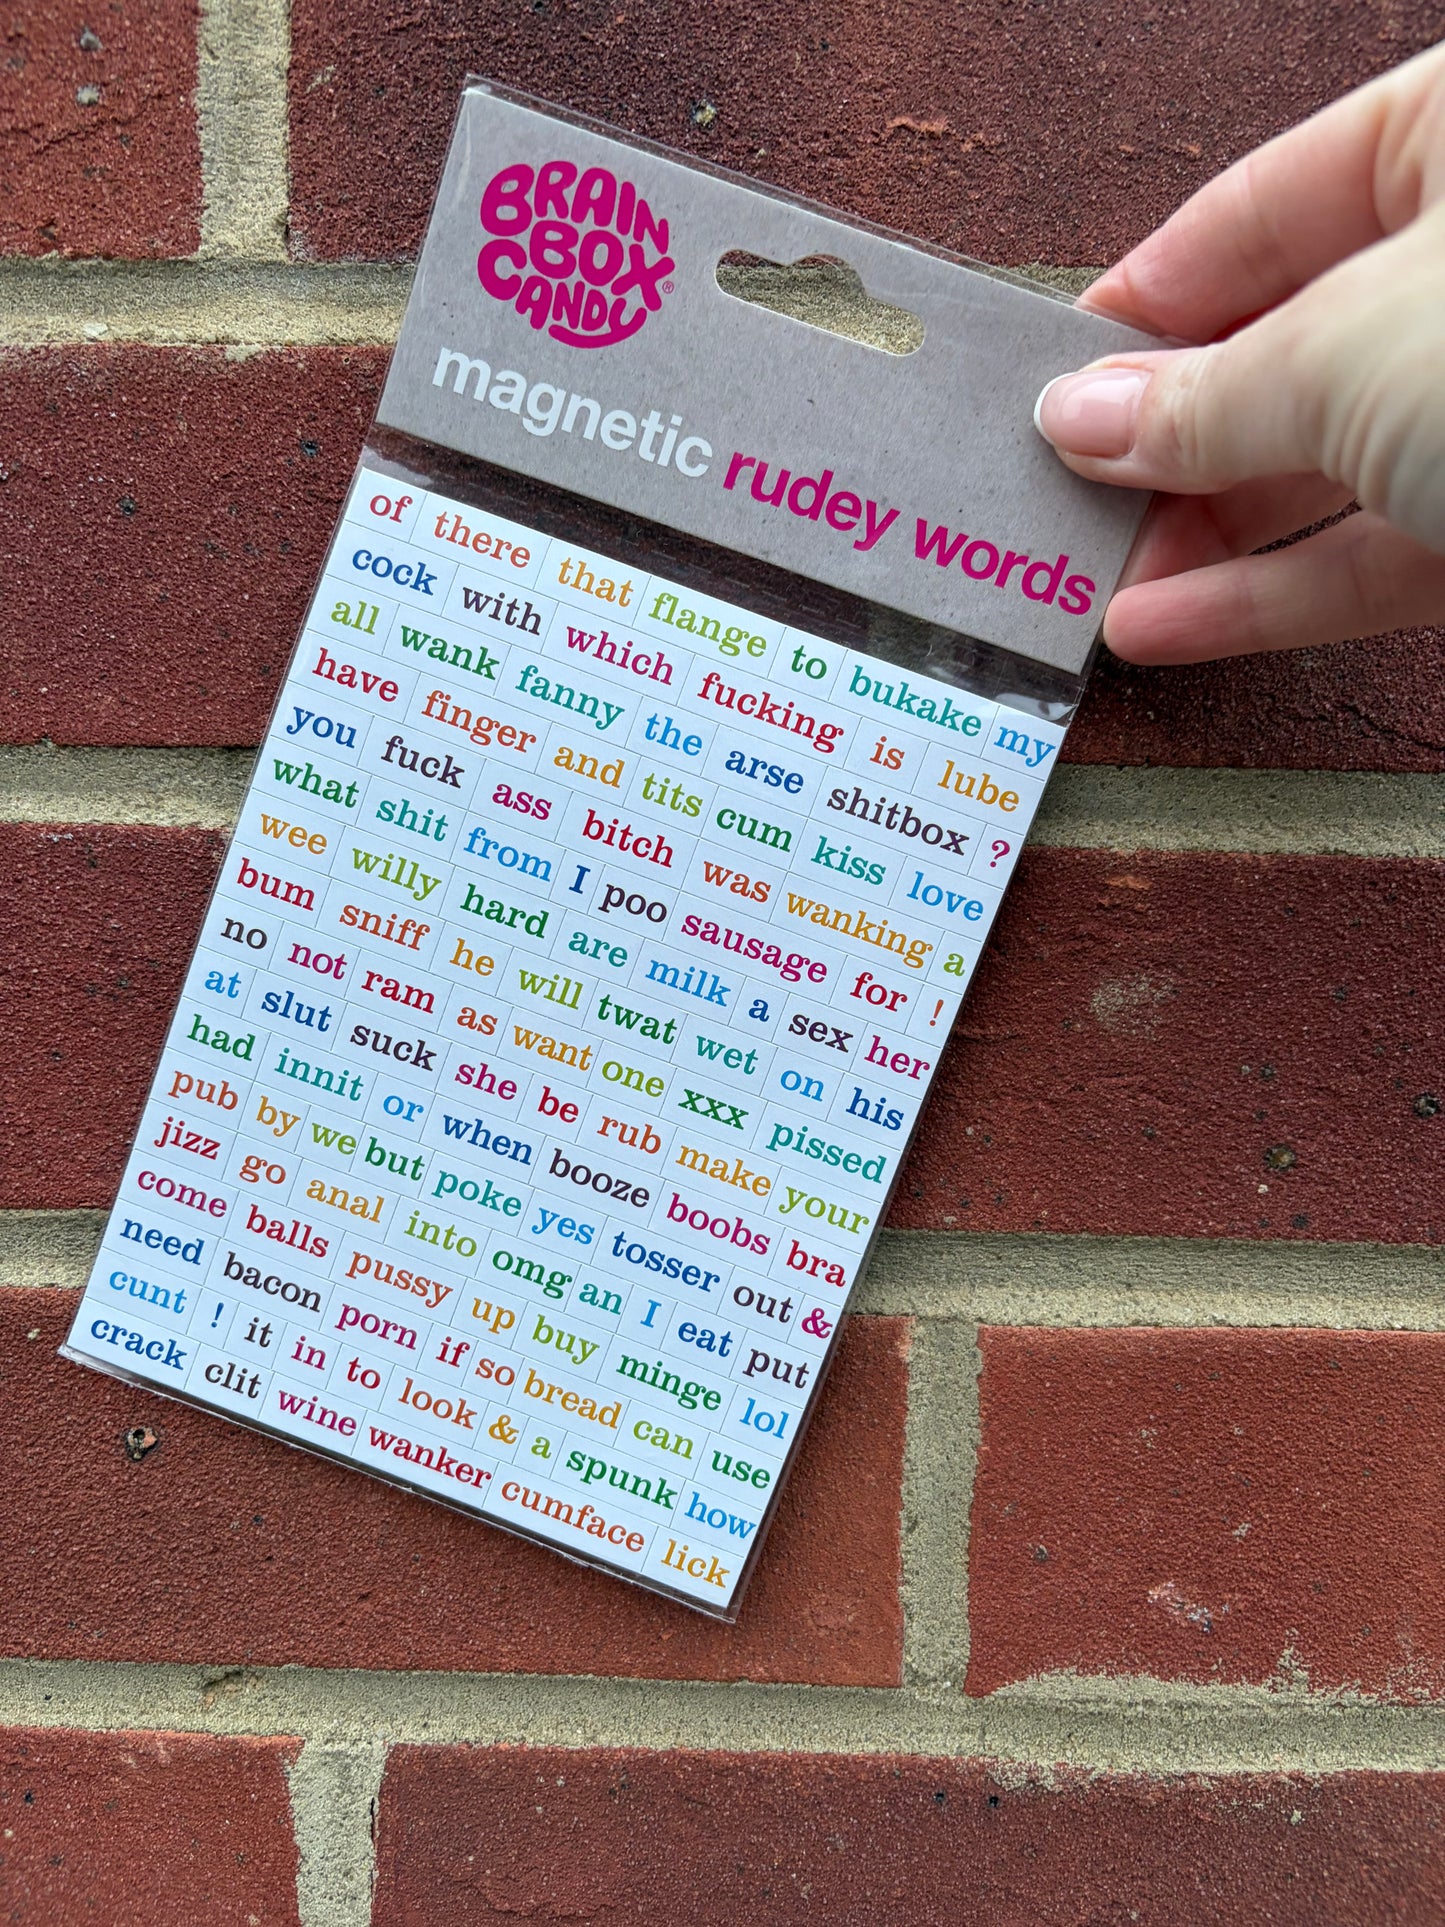 BRAIN
BOX
CANDY®
magnetic rudey words
of there that flange to bukake my
cock with which fucking is lube
all wank fanny the arse shitbox ?
have finger and tits cum kiss love
you fuck ass bitch was wanking a
what shit from I poo sausage for !
wee willy hard are milk a sex her
bum sniff he will twat wet on his
no not ram as want one xxx pissed
at slut suck she be rub make your
had innit or when booze boobs bra
pub by we but poke yes tosser out &
jizz go anal into omg an I eat put
come balls pussy up buy minge lol
need bacon porn if so bread can use
cunt ! it in to look & a spunk how
crack clit wine wanker cumface lick